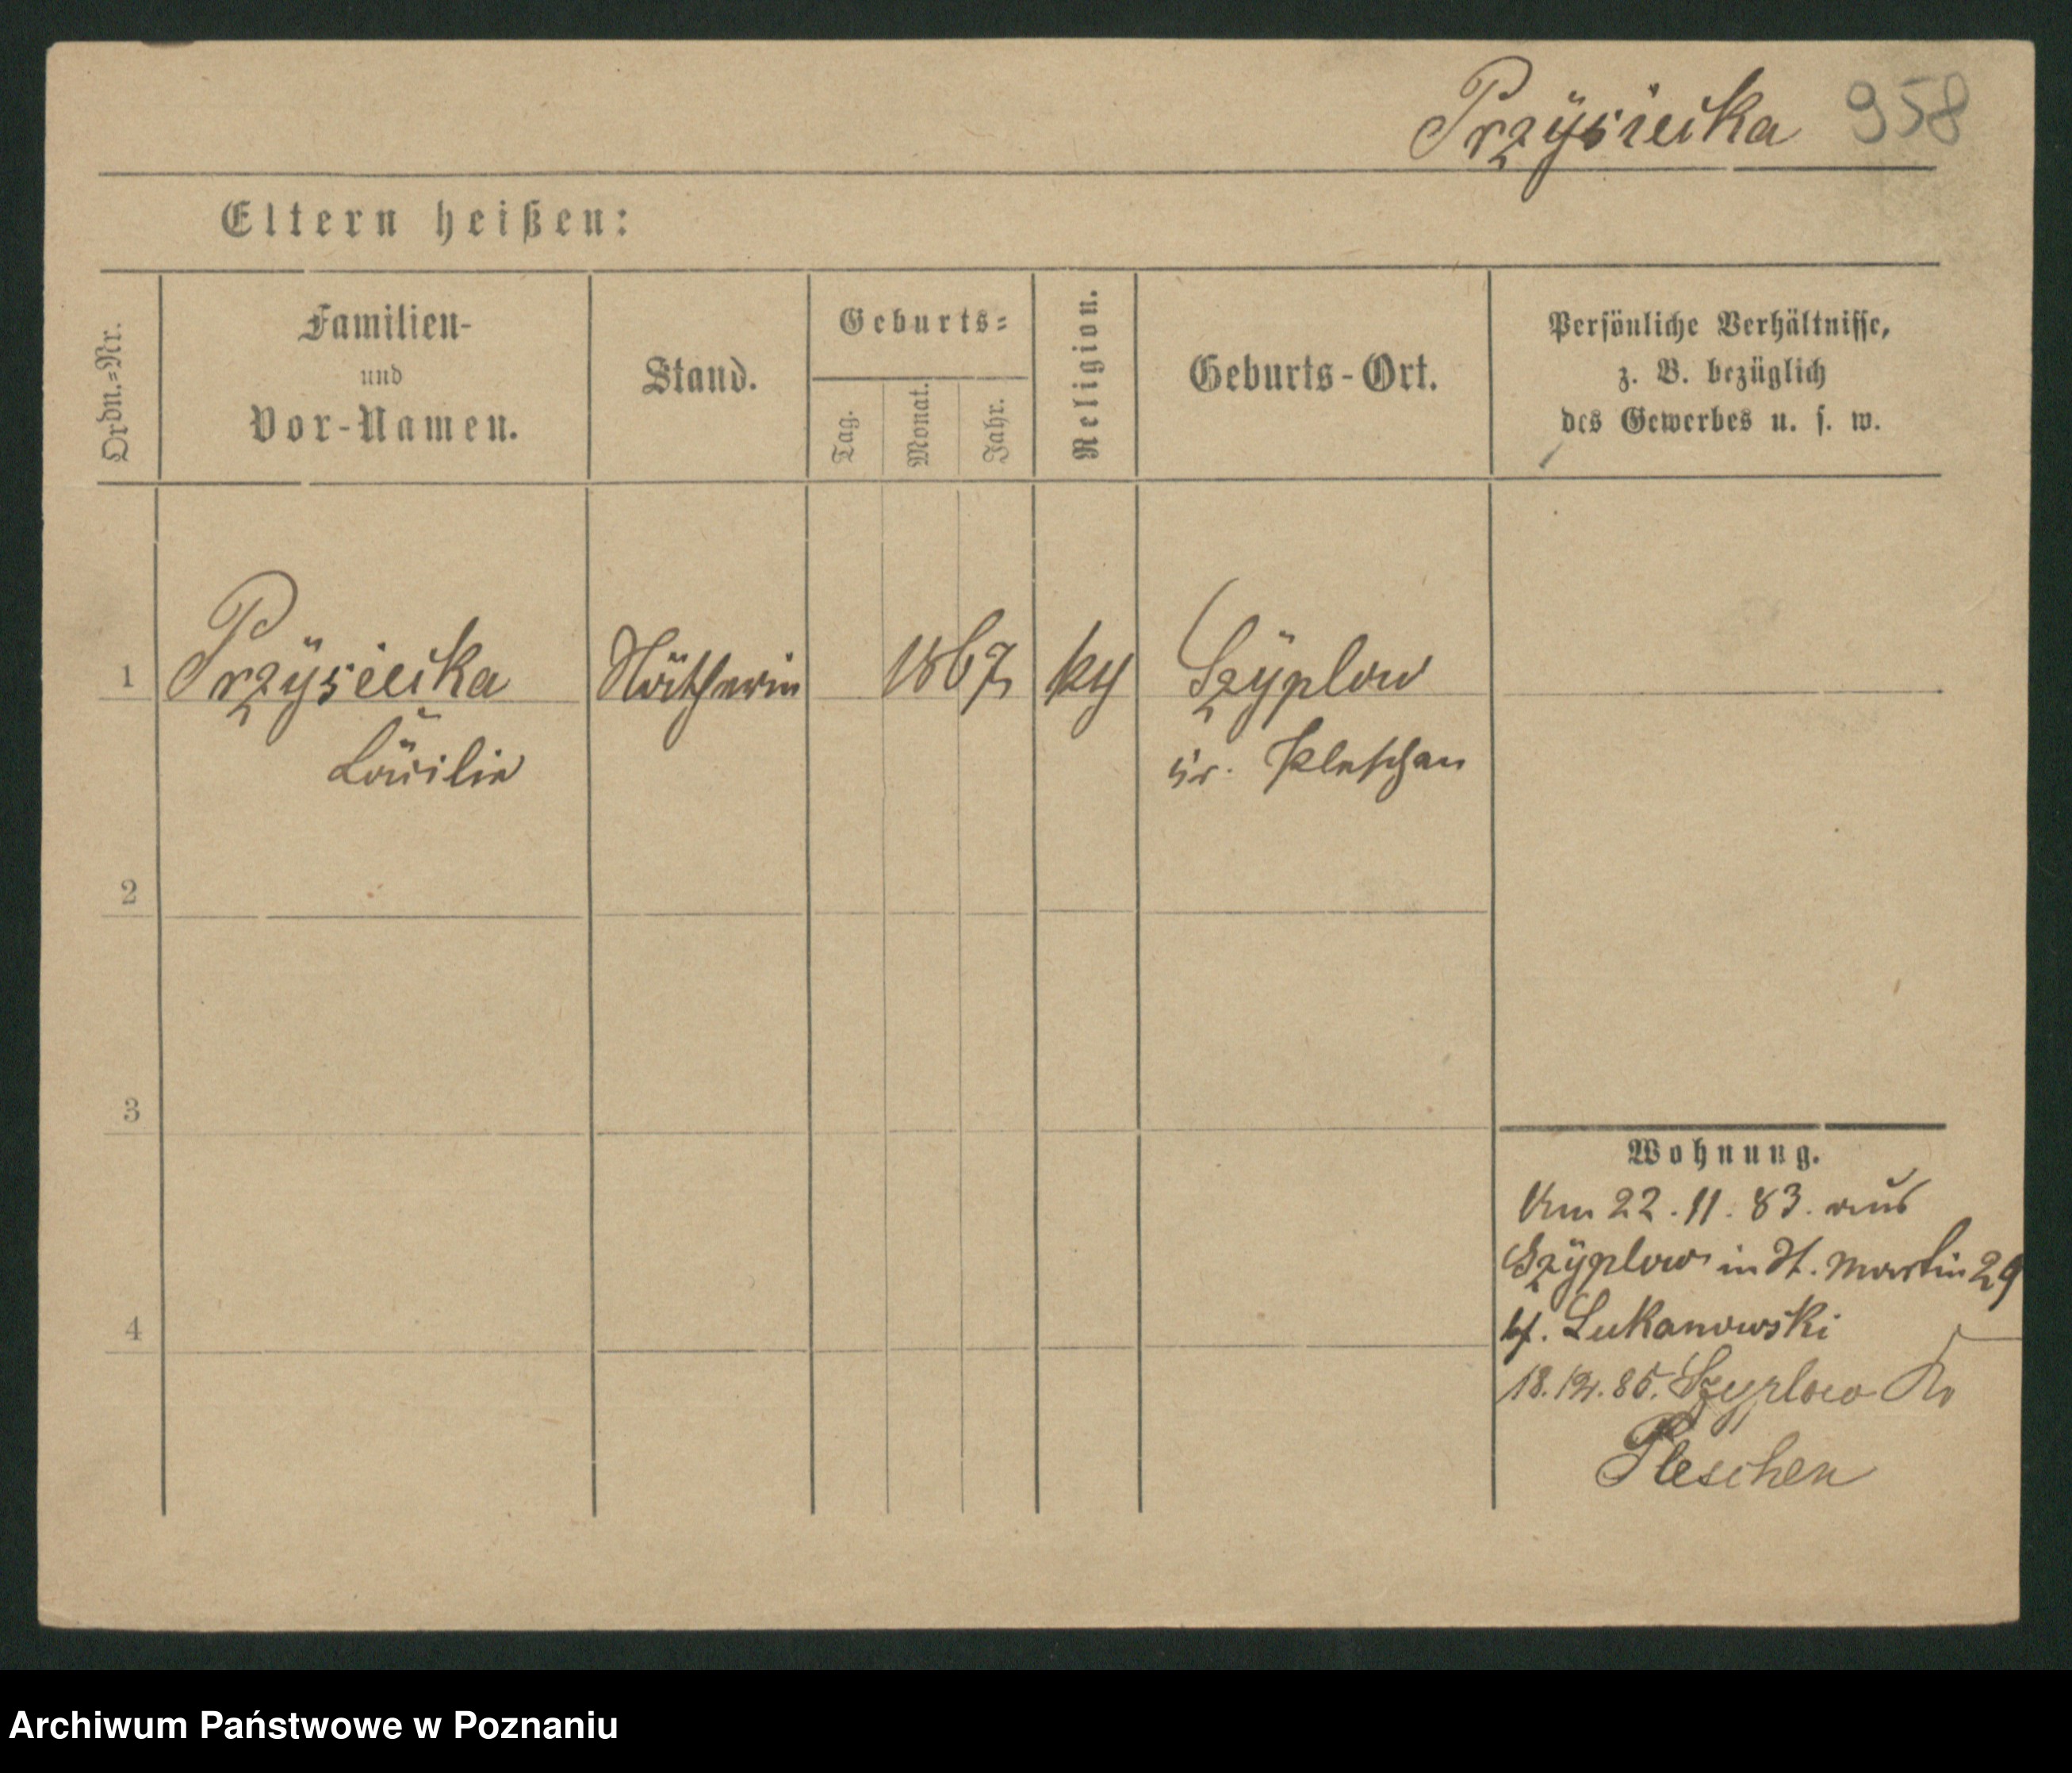 Przÿsiecka 958
Eltern heißen:
Ordn.=Nr.
Familien-
und
Vor-Namen.
Stand.
Geburts=
Tag.
Monat.
Jahr.
Religion.
Geburts-Ort.
Persönliche Verhältnisse,
z. B. bezüglich
des Gewerbes u. s. w.
1 Przÿsiecka Nätherin 1867 kth Szÿplow
Cäcilie Kr. Pleschen
2
3
4
Wohnung.
Am 22. 11. 83. aus
Szÿplow in St. Martin 29
bf. Lukanowski
18. 12. 85. Szyplow Kr
Pleschen
Archiwum Państwowe w Poznaniu